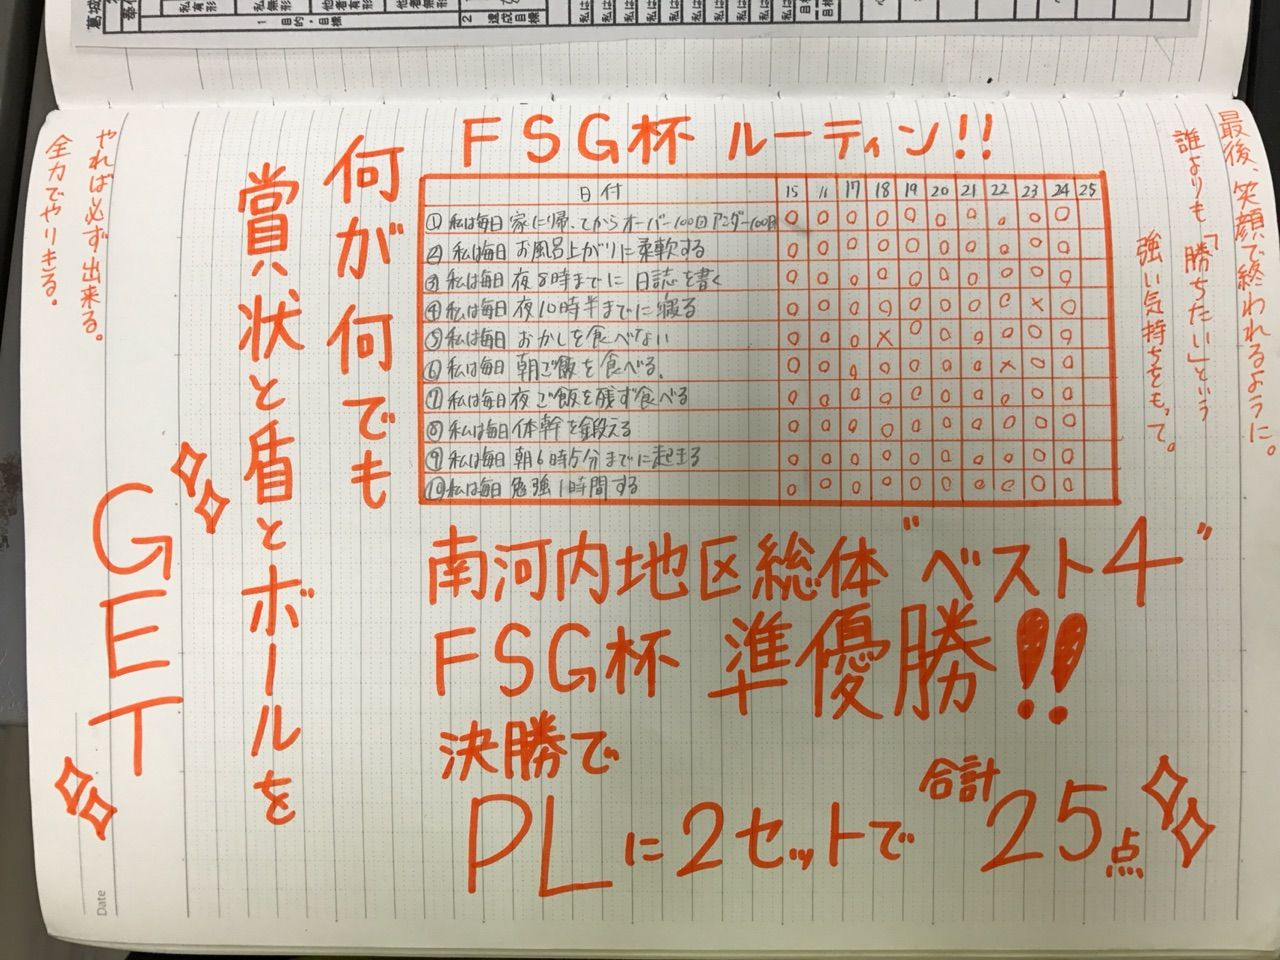 FSG杯 ルーティン!!
日付 15 16 17 18 19 20 21 22 23 24 25
① 私は毎日 家に帰ってからオーバー100回アンダー100回 ○ ○ ○ ○ ○ ○ ○ ○ ○ ○
② 私は毎日 お風呂上がりに柔軟する ○ ○ ○ ○ ○ ○ ○ ○ ○ ○
③ 私は毎日 夜8時までに 日誌を書く ○ ○ ○ ○ ○ ○ ○ ○ ○ ○
④ 私は毎日 夜10時半までに寝る ○ ○ ○ ○ ○ ○ ○ ○ × ○
⑤ 私は毎日 おかしを食べない ○ ○ ○ × ○ ○ ○ ○ ○ ○
⑥ 私は毎日 朝ご飯を食べる。 ○ ○ ○ ○ ○ ○ ○ × ○ ○
⑦ 私は毎日 夜ご飯を残ず食べる ○ ○ ○ ○ ○ ○ ○ ○ ○ ○
⑧ 私は毎日 体幹を鍛える ○ ○ ○ ○ ○ ○ ○ ○ ○ ○
⑨ 私は毎日 朝6時5分までに起きる ○ ○ ○ ○ ○ ○ ○ ○ ○ ○
⑩ 私は毎日 勉強1時間する ○ ○ ○ ○ ○ ○ ○ ○ ○ ○
最後、笑顔で終われるように。
誰よりも「勝ちたい」という
強い気持ちをもって。
南河内地区総体"ベスト4"
FSG杯 準優勝!!
決勝で
PLに2セットで 合計25点
何が何でも
賞状と盾とボールを
GET
やれば必ず出来る。
全力でやりきる。
Date